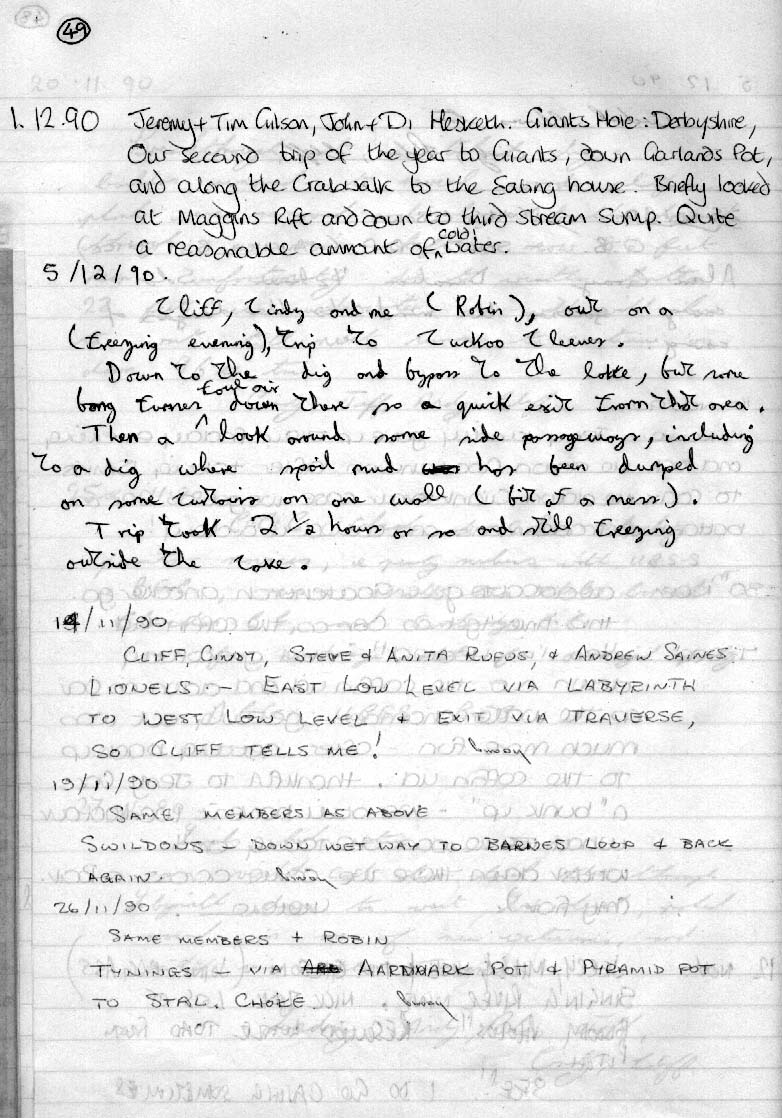 49
1.12.90 Jeremy + Tim Gilson, John + Di Hesketh. Giants Hole: Derbyshire,
Our second trip of the year to Giants, down Garlands Pot,
and along the Crabwalk to the Eating house. Briefly looked
at Maggins Rift and down to third Stream Sump. Quite
a reasonable ammant of cold! water.
5/12/90.
Cliff, Cindy and me (Robin), out on a
(freezing evening), trip to Cuckoo Cleeves.
Down to the dig and bypass to the lake, but some
bang fumes foul air down there so a quick exit from that area.
Then a look around some side passageways, including
to a dig where spoil mud has been dumped
on some curtains on one wall (bit of a mess).
Trip took 2 1/2 hours or so and still freezing
outside the cave.
14/11/90
CLIFF, CINDY, STEVE & ANITA RUFUS, & ANDREW SAINES.
LIONELS - EAST LOW LEVEL VIA LABYRINTH
TO WEST LOW LEVEL & EXIT VIA TRAVERSE,
SO CLIFF TELLS ME!
19/11/90
SAME MEMBERS AS ABOVE
SWILDONS - DOWN WET WAY TO BARNES LOOP & BACK
AGAIN.
26/11/90
SAME MEMBERS + ROBIN
TYNINGS - VIA AARDVARK POT & PYRAMID POT
TO STAL. CHOKE.